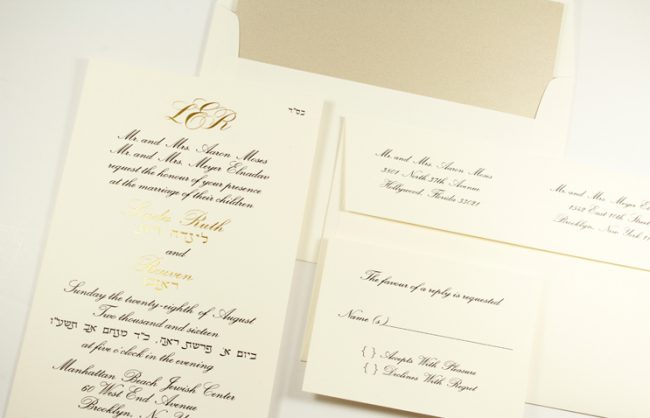 LER
בס"ד
Mr. and Mrs. Aaron Moses
Mr. and Mrs. Meyer Elnadav
request the honour of your presence
at the marriage of their children
Linda Ruth
and
Reuven
ראובן
Sunday the twenty-eighth of August
Two thousand and sixteen
ביום א׳ פרשת ראה, כ"ד מנחם אב תשע"ו
at five o'clock in the evening
Manhattan Beach Jewish Center
60 West End Avenue
Brooklyn, New York
Mr. and Mrs. Aaron Moses
3801 North 37th Avenue
Hollywood, Florida 33021
Mr. and Mrs. Meyer
East 10th Street
Brooklyn, New York
The favour of a reply is requested
Name (s)
{ } Accepts With Pleasure
{ } Declines With Regret